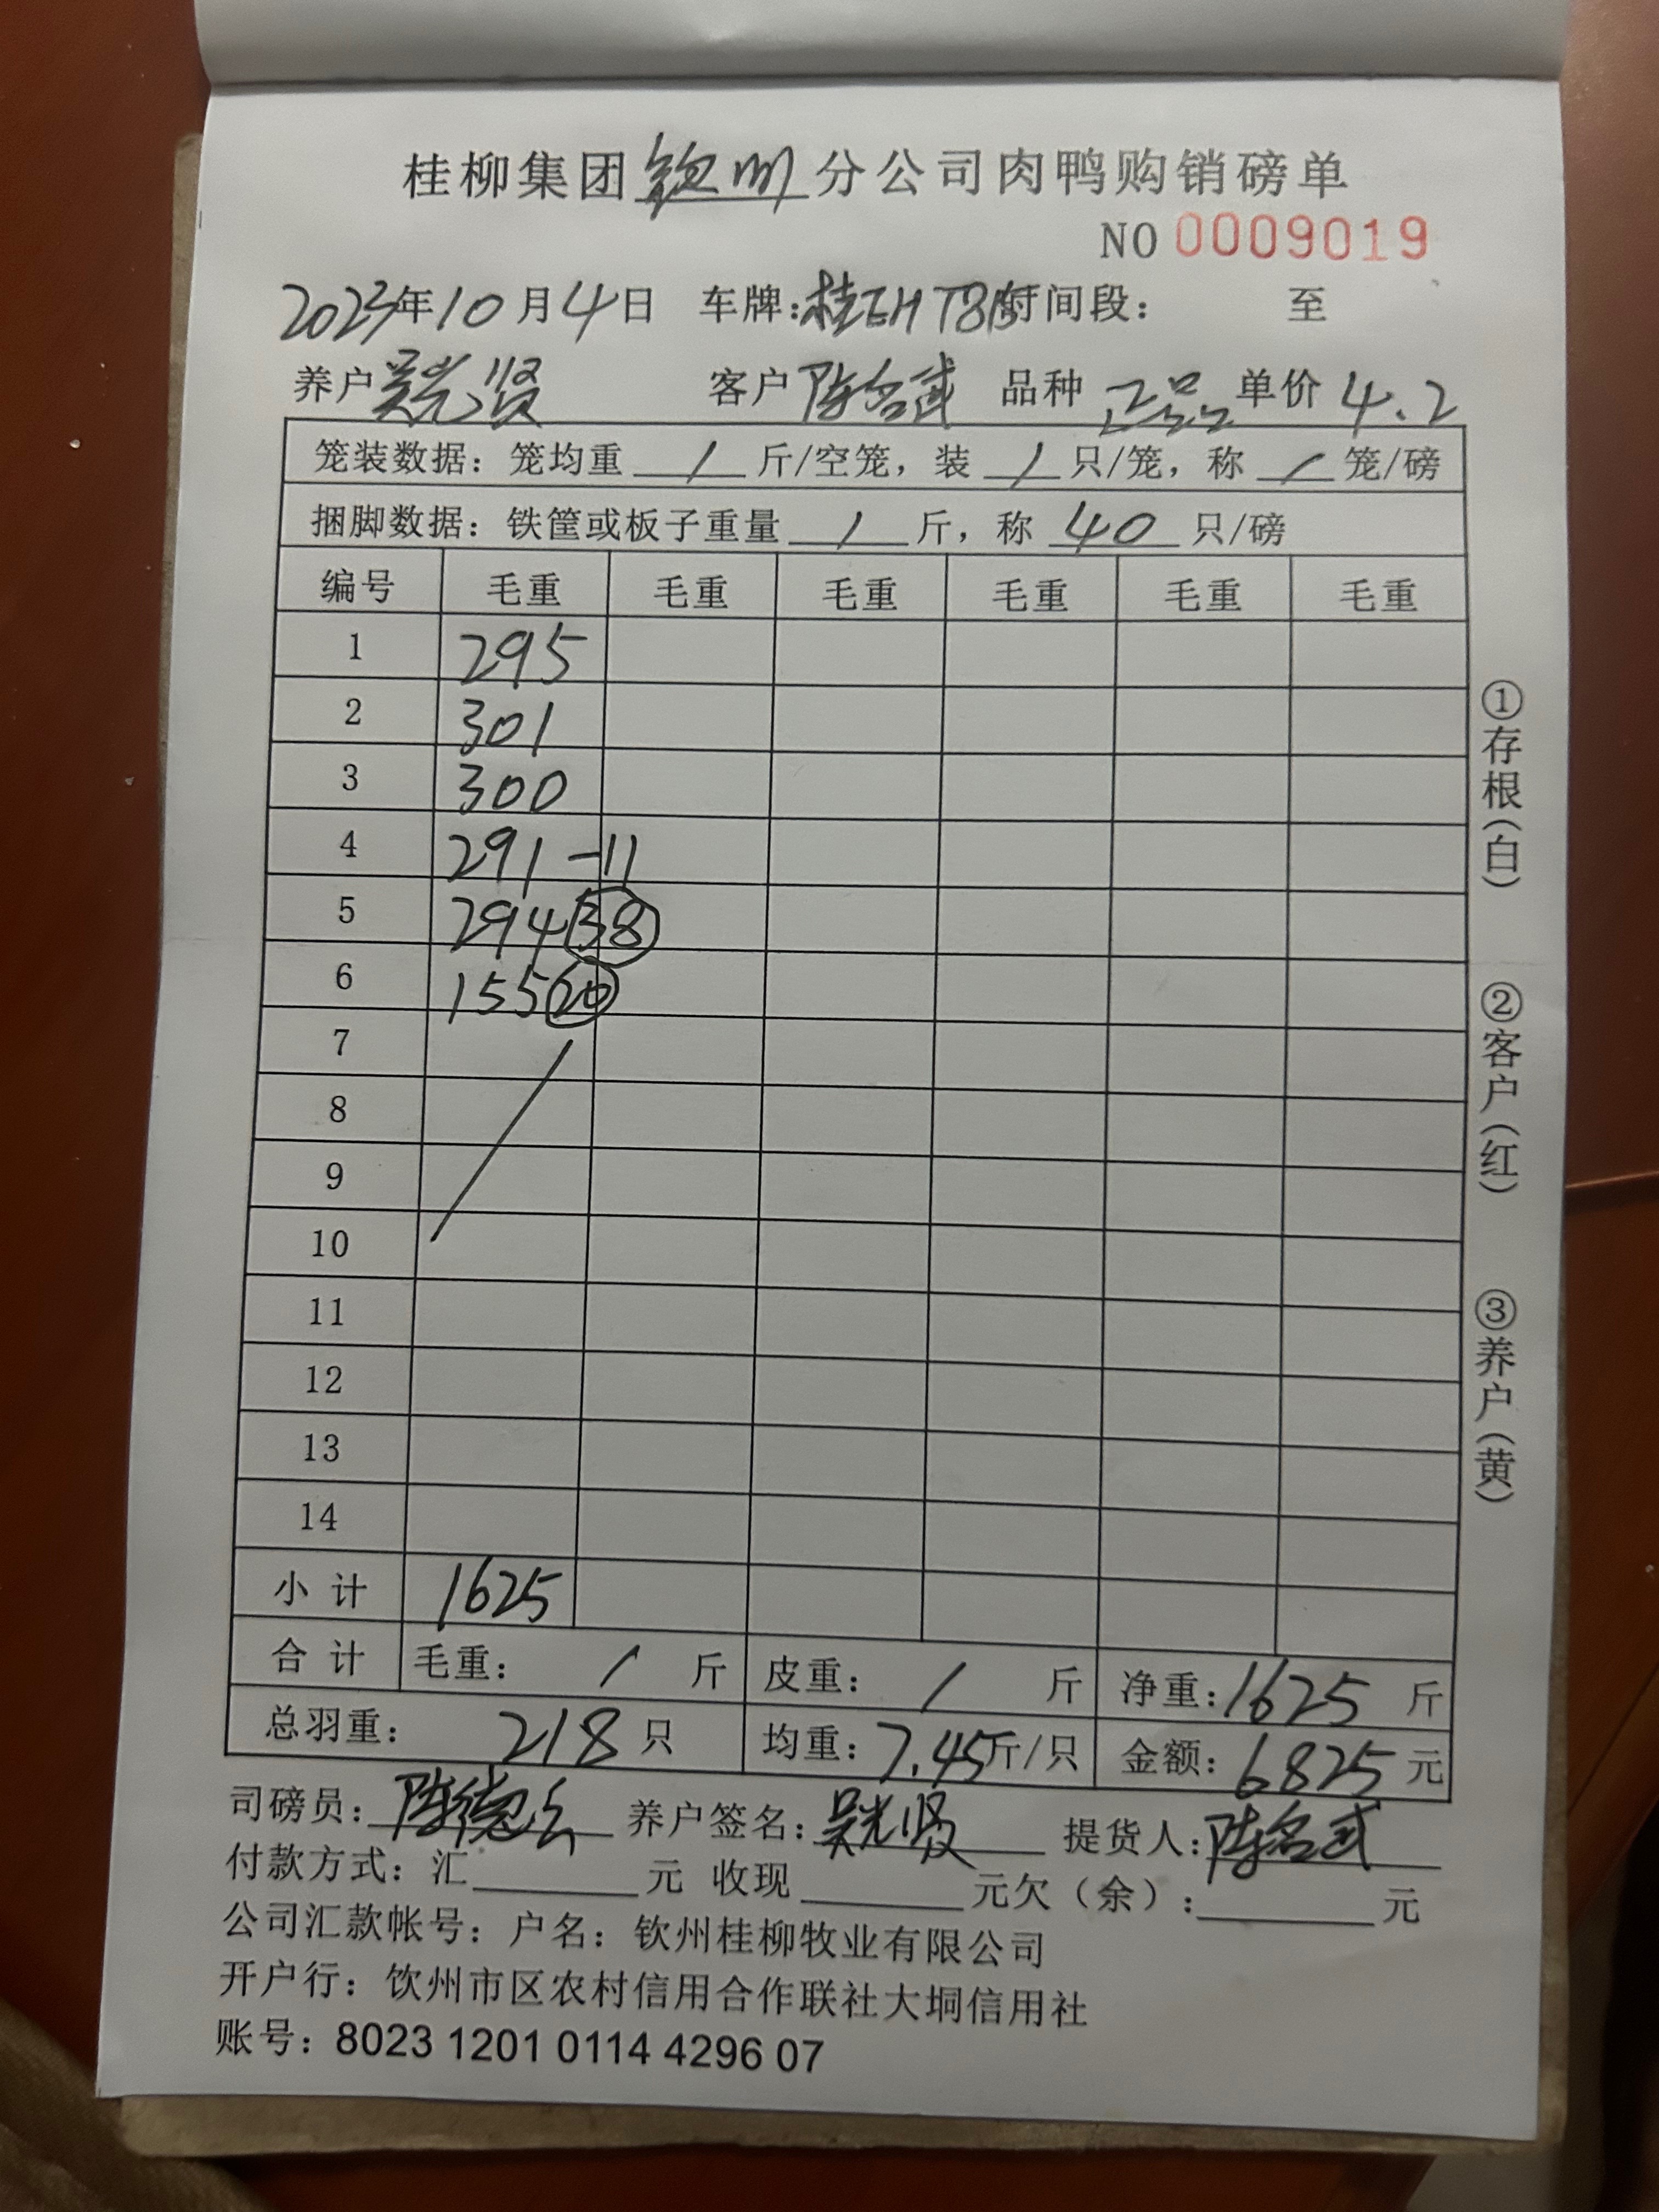 桂柳集团钦州分公司肉鸭购销磅单
NO 0009019
2023年10月4日 车牌:桂EHT8 时间段: 至
养户吴光贤 客户陈名武 品种 正品 单价 4.2
笼装数据: 笼均重 / 斤/空笼, 装 / 只/笼, 称 / 笼/磅
捆脚数据: 铁筐或板子重量 / 斤, 称 40 只/磅
编号 毛重 毛重 毛重 毛重 毛重 毛重
1 295
2 301
3 300
4 291 -11
5 294 38
6 155 20
7
8
9
10
11
12
13
14
小计 1625
合计 毛重: / 斤 皮重: / 斤 净重:1625 斤
总羽重: 218 只 均重: 7.45斤/只 金额: 6825 元
司磅员: 陈德 养户签名: 吴光贤 提货人: 陈名武
付款方式: 汇 元 收现 元欠(余): 元
公司汇款帐号: 户名: 钦州桂柳牧业有限公司
开户行: 饮州市区农村信用合作联社大垌信用社
账号: 8023 1201 0114 4296 07
①存根(白)
②客户(红)
③养户(黄)